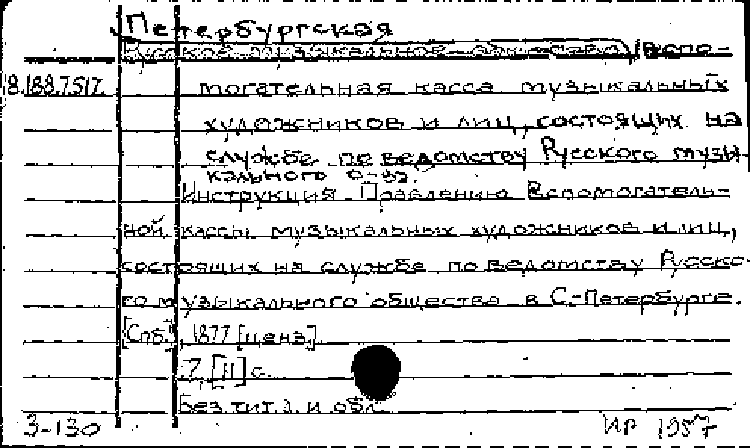 Петербургская
Русское музыкальное общество. Вспо-
18.188.7.517.
могательная касса музыкальных
художников и лиц, состоящих на
службе по ведомству Русского музы-
кального о-ва.
Инструкция Правлению Вспомогатель-
ной кассы музыкальных художников и лиц,
состоящих на службе по ведомству Русско-
го музыкального общества в С.-Петербурге.
[Спб.], 1877 [ценз.]
7, [11] с.
Без тит. л. и обл.
3-130
ИР 1957